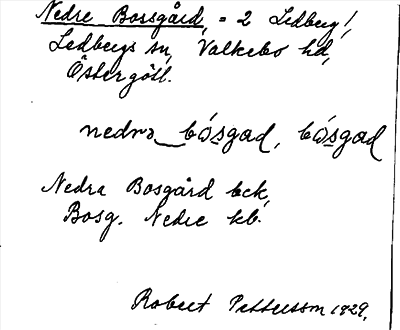 Nedre Bossgård, = 2 Ledberg!,
Ledbergs sn, Valkebo hd,
Östergötl.
nedrə bósgad, bósgad
Nedra Bosgård bck,
Bosg. Nedre kb.
Robert Pettersson 1929,